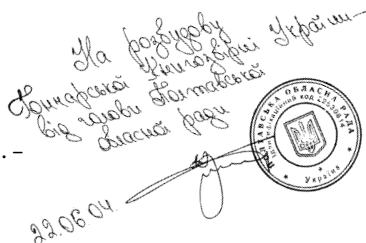 На розбудову
Гончарської Книгозбірні України
від голови Полтавської
обласної ради
22.06.04.
ПОЛТАВСЬКА ОБЛАСНА РАДА
Ідентифікаційний код
Україна